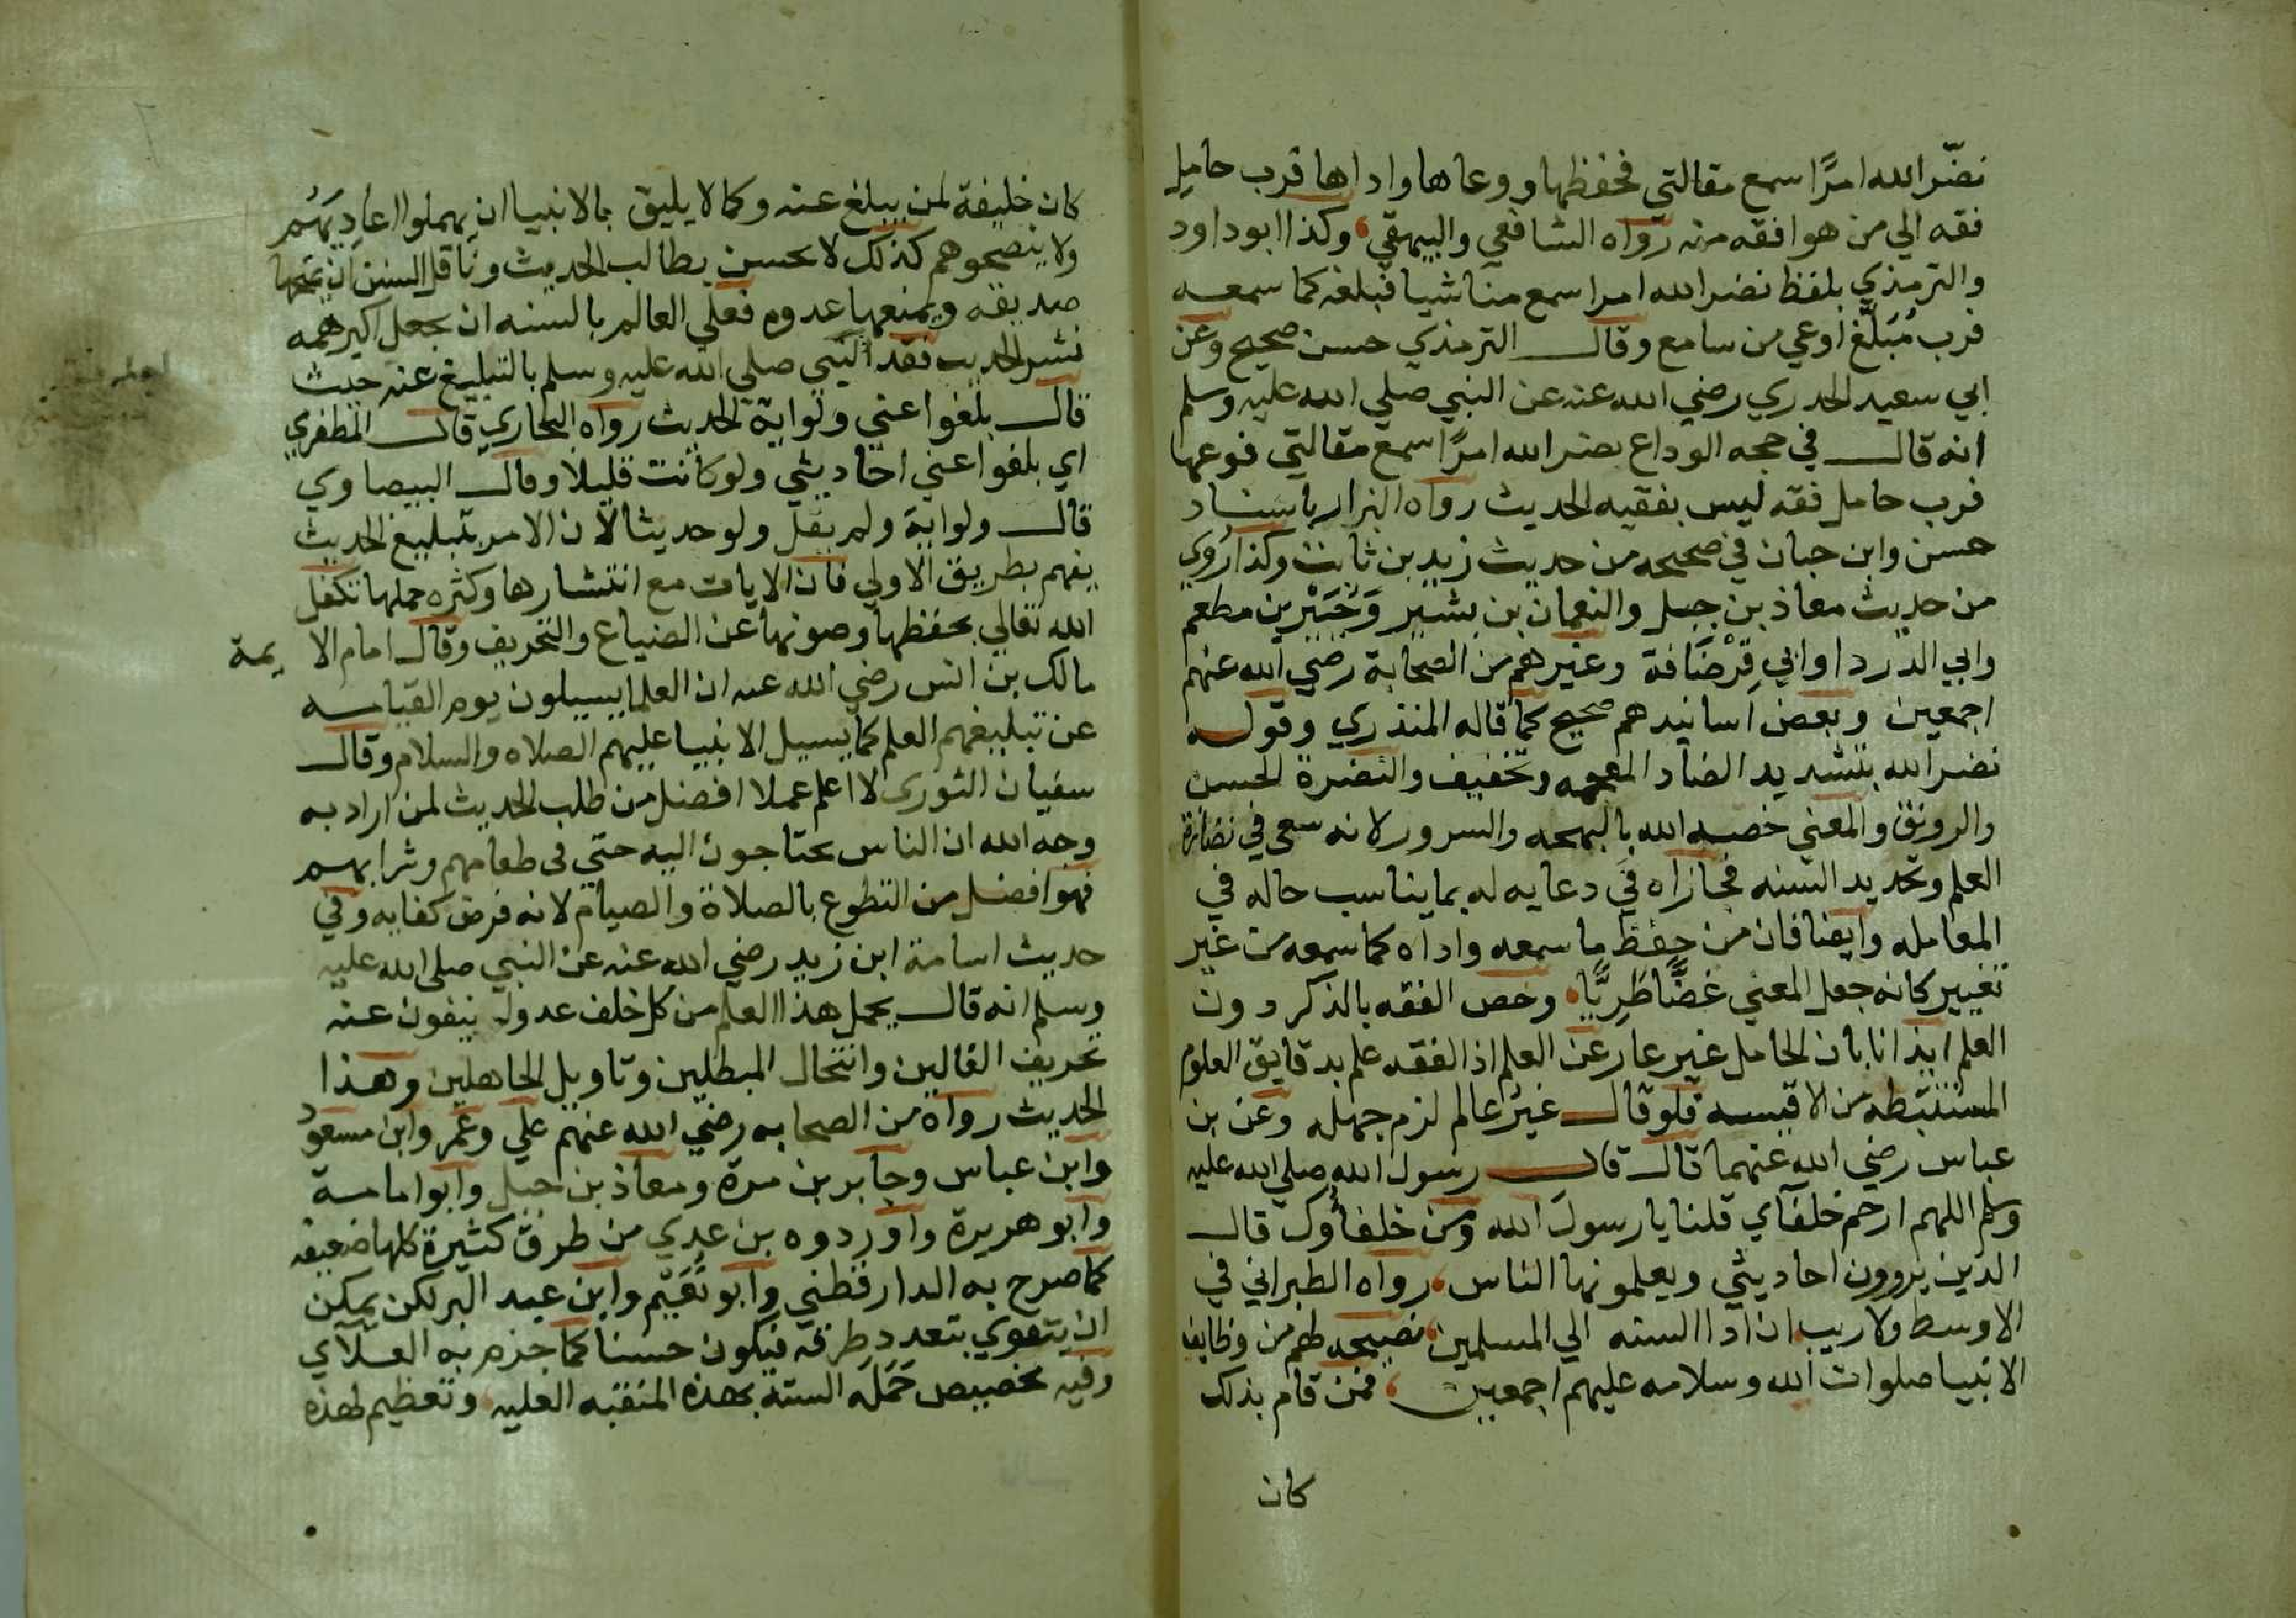 نضّر الله امرًا سمع مقالتي فحفظها ووعاها واداها فرب حامل
فقه الي من هو افقه منه رواه الشافعي والبيهقي، وكذا ابوداود
والترمذي بلفظ نضر الله امرا سمع منا شيا فبلغه كما سمعه
فرب مُبَلَّغ اوعي من سامع وقال الترمذي حسن صحيح وعن
ابي سعيد الخدري رضي الله عنه عن النبي صلي الله عليه وسلم
انه قال في حجه الوداع نضر الله امرًا سمع مقالتي فوعها
فرب حامل فقه ليس بفقيه الحديث رواه البزار باسناد
حسن وابن حبان في صحيحه من حديث زيد بن ثابت وكذا رُوي
من حديث معاذ بن جبل والنعمان بن بشير وَجُبَيْر بن مطعم
وابي الدردا وابي قِرْصَافة وغيرهم من الصحابة رضي الله عنهم
اجمعين وبعض اسانيدهم صحيح كما قاله المنذري وقوله
نضر الله بتشديد الضاد المعجمه وتخفيف والنضرة الحسن
والرونق والمعني خصه الله بالبهجه والسرور لانه سعي في نضارة
العلم وتجديد السنه فجازاه في دعايه له بما يناسب حاله في
المعامله وايضا فان من حِفْظ ما سمعه واداه كما سمعه من غير
تغيير كانه جعل المعني غضًّا طَرِيًّا، وخص الفقه بالذكر دون
العلم ايذانا بان الحامل غير عار عن العلم اذ الفقه علم بدقايق العلوم
المستنبطه من الاقيسه فلو قال غير عالم لزم جهله وعن بن
عباس رضي الله عنهما قال قال رسول الله صلي الله عليه
وسلم اللهم ارحم خلفآي قلنا يا رسول الله ومن خلفاؤك قال
الذين يروون احاديثي ويعلمونها الناس، رواه الطبراني في
الاوسط ولا ريب ان ادا السنه الي المسلمين، نصيحه لهم من وظايف
الانبيا صلوات الله وسلامه عليهم اجمعين، فمن قام بذلك
كان
كان خليفة لمن يبلغ عنه وكما لا يليق بالانبيا ان يهملوا اعاديَهُم
ولا ينصحوهم كذلك لا يحسن بطالب الحديث وناقل السنن ان يمنحها
صديقه ويمنعها عدوه فعلي العالم بالسنه ان يجعل اكبر همه
نشر الحديث فقد امر النبي صلي الله عليه وسلم بالتبليغ عنه حيث
قال بلغوا عني ولو اية الحديث رواه البخاري قال المظهري
اي بلغوا عني احاديثي ولو كانت قليلا وقال البيضاوي
قال ولو اية ولم يقل ولو حديثا لان الامر بتبليغ الحديث
يفهم بطريق الاولي فان الايات مع انتشارها وكثره حملها تكفل
الله تعالي بحفظها وصونها عن الضياع والتحريف وقال امام الايمة
مالك بن انس رضي الله عنه ان العلما يسيلون يوم القيامه
عن تبليغهم العلم كما يسيل الانبيا عليهم الصلاه والسلام وقال
سفيان الثوري لا اعلم عملا افضل من طلب الحديث لمن اراد به
وجه الله ان الناس يحتاجون اليه حتي في طعامهم وشرابهم
فهو افضل من التطوع بالصلاة والصيام لانه فرض كفايه وفي
حديث اسامة ابن زيد رضي الله عنه عن النبي صلي الله عليه
وسلم انه قال يحمل هذا العلم من كل خلف عدوله ينفون عنه
تحريف الغالين وانتحال المبطلين وتاويل الجاهلين وهذا
الحديث رواه من الصحابه رضي الله عنهم علي وعمر وابن مسعود
وابن عباس وجابر بن سمرة ومعاذ بن جبل وابوا مامه
وابو هريرة واوردوه بن عدي من طرق كثيرة كلها ضعيفه
كما صرح به الدارقطني وابو نُعَيْم وابن عبد البر لكن يمكن
ان يتقوي بتعدد طرقه فيكون حسنا كما جزم به العلآي
وفيه تخصيص حَمَلَه السنة بهذه المنقبه العليه، وتعظيم لهذه